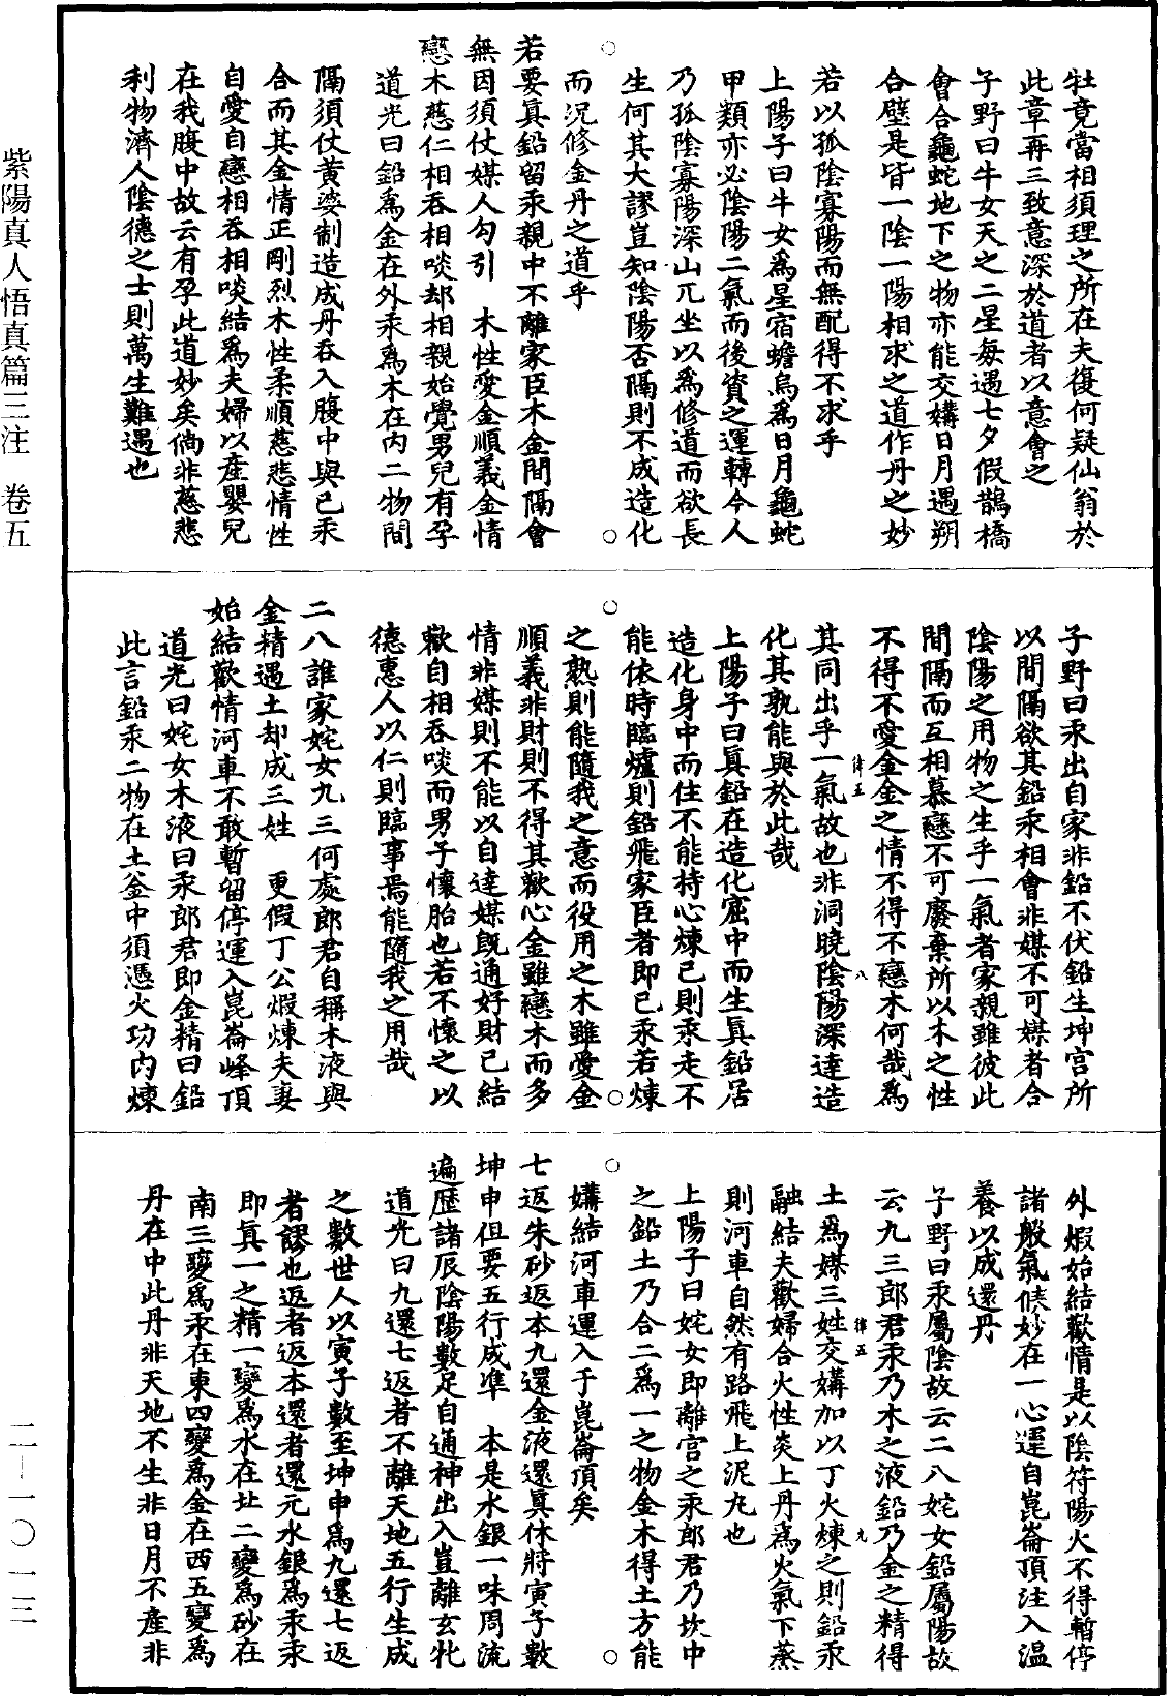 牡竟當相須理之所在夫復何疑仙翁於
此章再三致意深於道者以意會之
子野曰牛女天之二星每遇七夕假鵲橋
會合龜蛇地下之物亦能交媾日月遇朔
合璧是皆一陰一陽相求之道作丹之妙
若以孤陰寡陽而無配得不求乎
上陽子曰牛女為星宿蟾烏為日月龜蛇
甲類亦必陰陽二氣而後資之運轉今人
乃孤陰寡陽深山兀坐以為修道而欲長
生何其大謬豈知陰陽否隔則不成造化
而況修金丹之道乎
若要真鉛留汞親中不離家臣木金間隔會
無因須仗媒人勾引　木性愛金順義金情
戀木慈仁相吞相啖却相親始覺男兒有孕
道光曰鉛為金在外汞為木在內二物間
隔須仗黃婆制造成丹吞入腹中與已汞
合而其金情正剛烈木性柔順慈悲情性
自愛自戀相吞相啖結為夫婦以產嬰兒
在我腹中故云有孕此道妙矣倘非慈悲
利物濟人陰德之士則萬生難遇也
子野曰汞出自家非鉛不伏鉛生坤宮所
以間隔欲其鉛汞相會非媒不可媒者合
陰陽之用物之生乎一氣者家親雖彼此
間隔而互相慕戀不可廢棄所以木之性
不得不愛金金之情不得不戀木何哉為
其同出乎一氣故也非洞曉陰陽深達造
化其孰能與於此哉
上陽子曰真鉛在造化窟中而生真鉛居
造化身中而住不能持心煉己則汞走不
能依時臨爐則鉛飛家臣者即己汞若煉
之熟則能隨我之意而役用之木雖愛金
順義非財則不得其歡心金雖戀木而多
情非媒則不能以自達媒既通好財已結
歡自相吞啖而男子懷胎也若不懷之以
德惠人以仁則臨事焉能隨我之用哉
二八誰家姹女九三何處郎君自稱木液與
金精遇土却成三姓　更假丁公煆煉夫妻
始結歡情河車不敢暫留停運入崑崙峰頂
道光曰姹女木液曰汞郎君即金精曰鉛
此言鉛汞二物在土釜中須憑火功內煉
外煆始結歡情是以陰符陽火不得暫停
諸般氣候妙在一心運自崑崙頂注入溫
養以成還丹
子野曰汞屬陰故云二八姹女鉛屬陽故
云九三郎君汞乃木之液鉛乃金之精得
土為媒三姓交媾加以丁火煉之則鉛汞
融結夫歡婦合火性炎上丹為火氣下蒸
則河車自然有路飛上泥丸也
上陽子曰姹女即離宮之汞郎君乃坎中
之鉛土乃合二為一之物金木得土方能
媾結河車運入于崑崙頂矣
七返朱砂返本九還金液還真休將寅子數
坤申但要五行成準　本是水銀一味周流
遍歷諸辰陰陽數足自通神出入豈離玄牝
道光曰九還七返者不離天地五行生成
之數世人以寅子數至坤申為九還七返
者謬也返者返本還者還元水銀為汞汞
即真一之精一變為水在北二變為砂在
南三變為汞在東四變為金在西五變為
丹在中此丹非天地不生非日月不產非
紫陽真人悟真篇三注　卷五
二—一〇一三